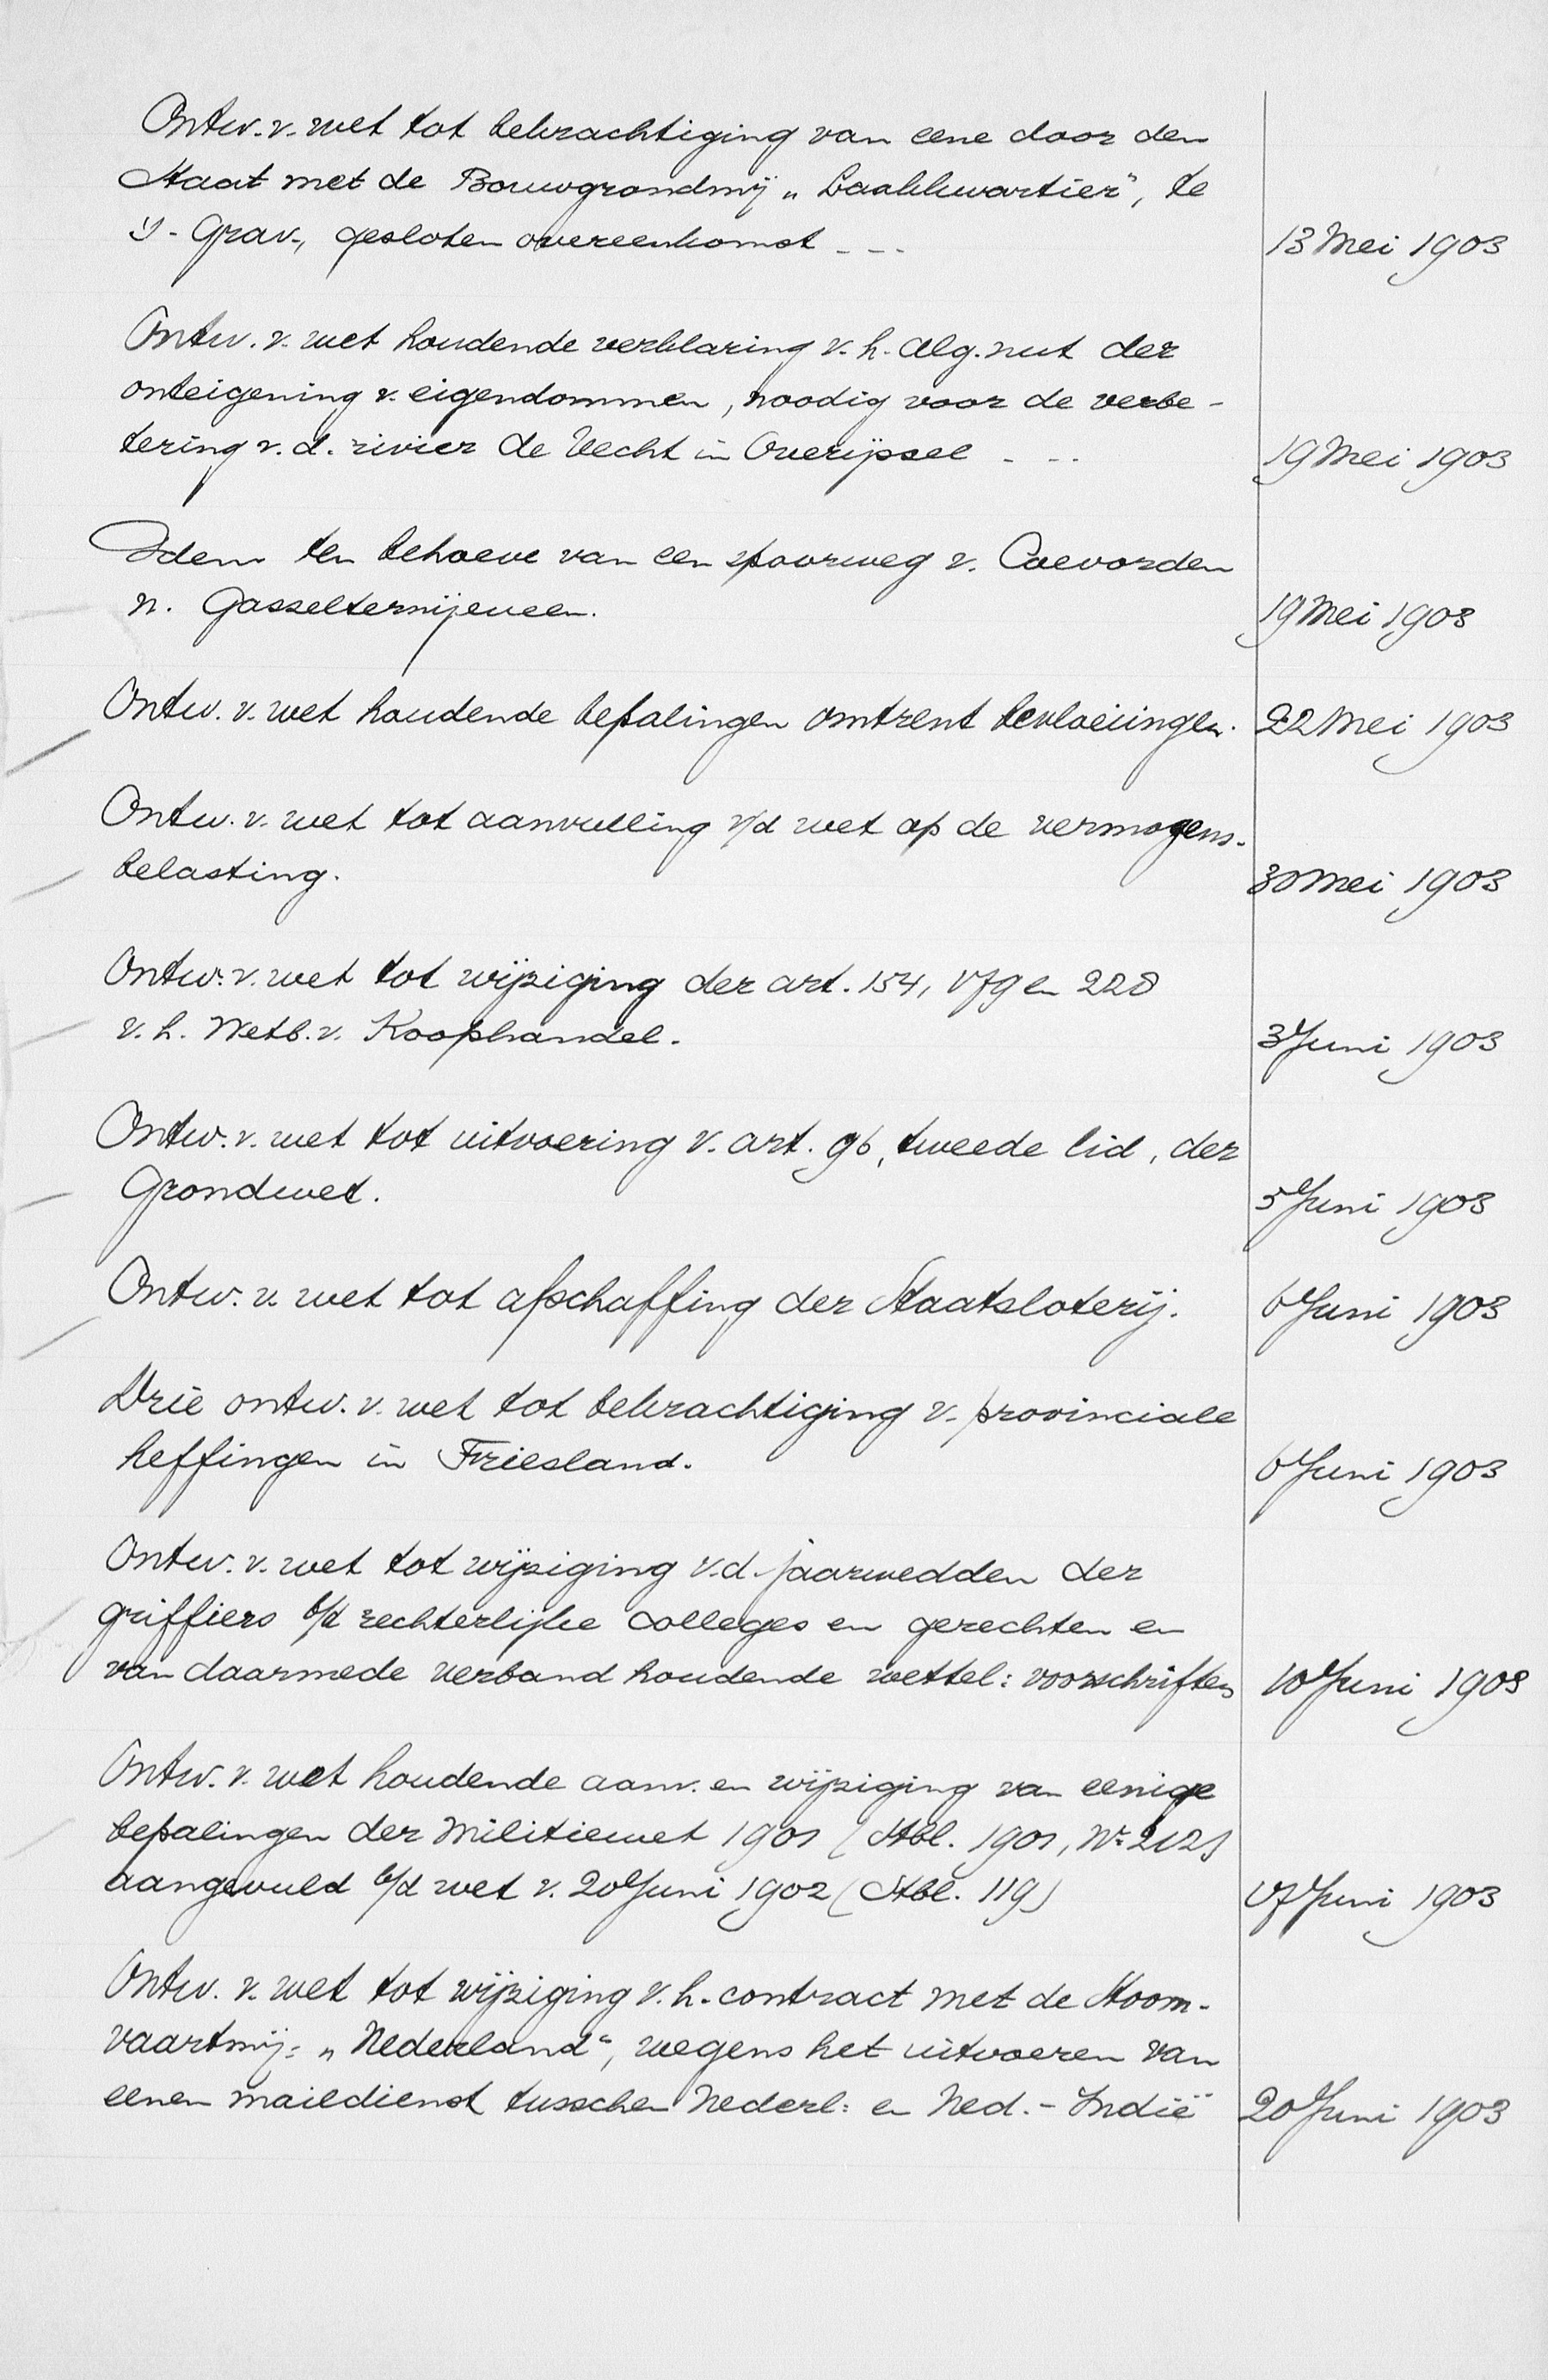 Ontw. v. wet tot bekrachtiging van eene door den
Staat met de Bouwgrondmij „Laakkwartier”, te
's-Grav., gesloten overeenkomst - - -
13 Mei 1903
Ontw. v. wet houdende verklaring v. h. alg. nut der
onteigening v. eigendommen, noodig voor de verbe-
tering v. d. rivier de Vecht in Overijssel - - -
19 Mei 1903
Idem ten behoeve van een spoorweg v. Coevorden
n. Gasselternijeveen.
19 Mei 1903
Ontw. v. wet houdende bepalingen omtrent bevloeiingen.
22 Mei 1903
Ontw. v. wet tot aanvulling v/d wet op de vermogens-
belasting.
30 Mei 1903
Ontw. v. wet tot wijziging der art. 154, 179 en 228
v. h. Wetb. v. Koophandel.
3 Juni 1903
Ontw. v. wet tot uitvoering v. art. 96, tweede lid, der
Grondwet.
5 Juni 1903
Ontw. v. wet tot afschaffing der Staatsloterij.
6 Juni 1903
Drie ontw. v. wet tot bekrachtiging v. provinciale
heffingen in Friesland.
6 Juni 1903
Ontw. v. wet tot wijziging v. d. jaarwedden der
griffiers b/d rechterlijke colleges en gerechten en
van daarmede verband houdende wettel: voorschriften
10 Juni 1903
Ontw. v. wet houdende aanv. en wijziging van eenige
bepalingen der Militiewet 1901 (Stbl. 1901, No 212)
aangevuld b/d wet v. 20 Juni 1902 (Stbl. 119)
17 Juni 1903
Ontw. v. wet tot wijziging v. h. contract met de Stoom-
vaartmij: „Nederland”, wegens het uitvoeren van
eenen maildienst tusschen Nederl: en Ned.-Indië
20 Juni 1903